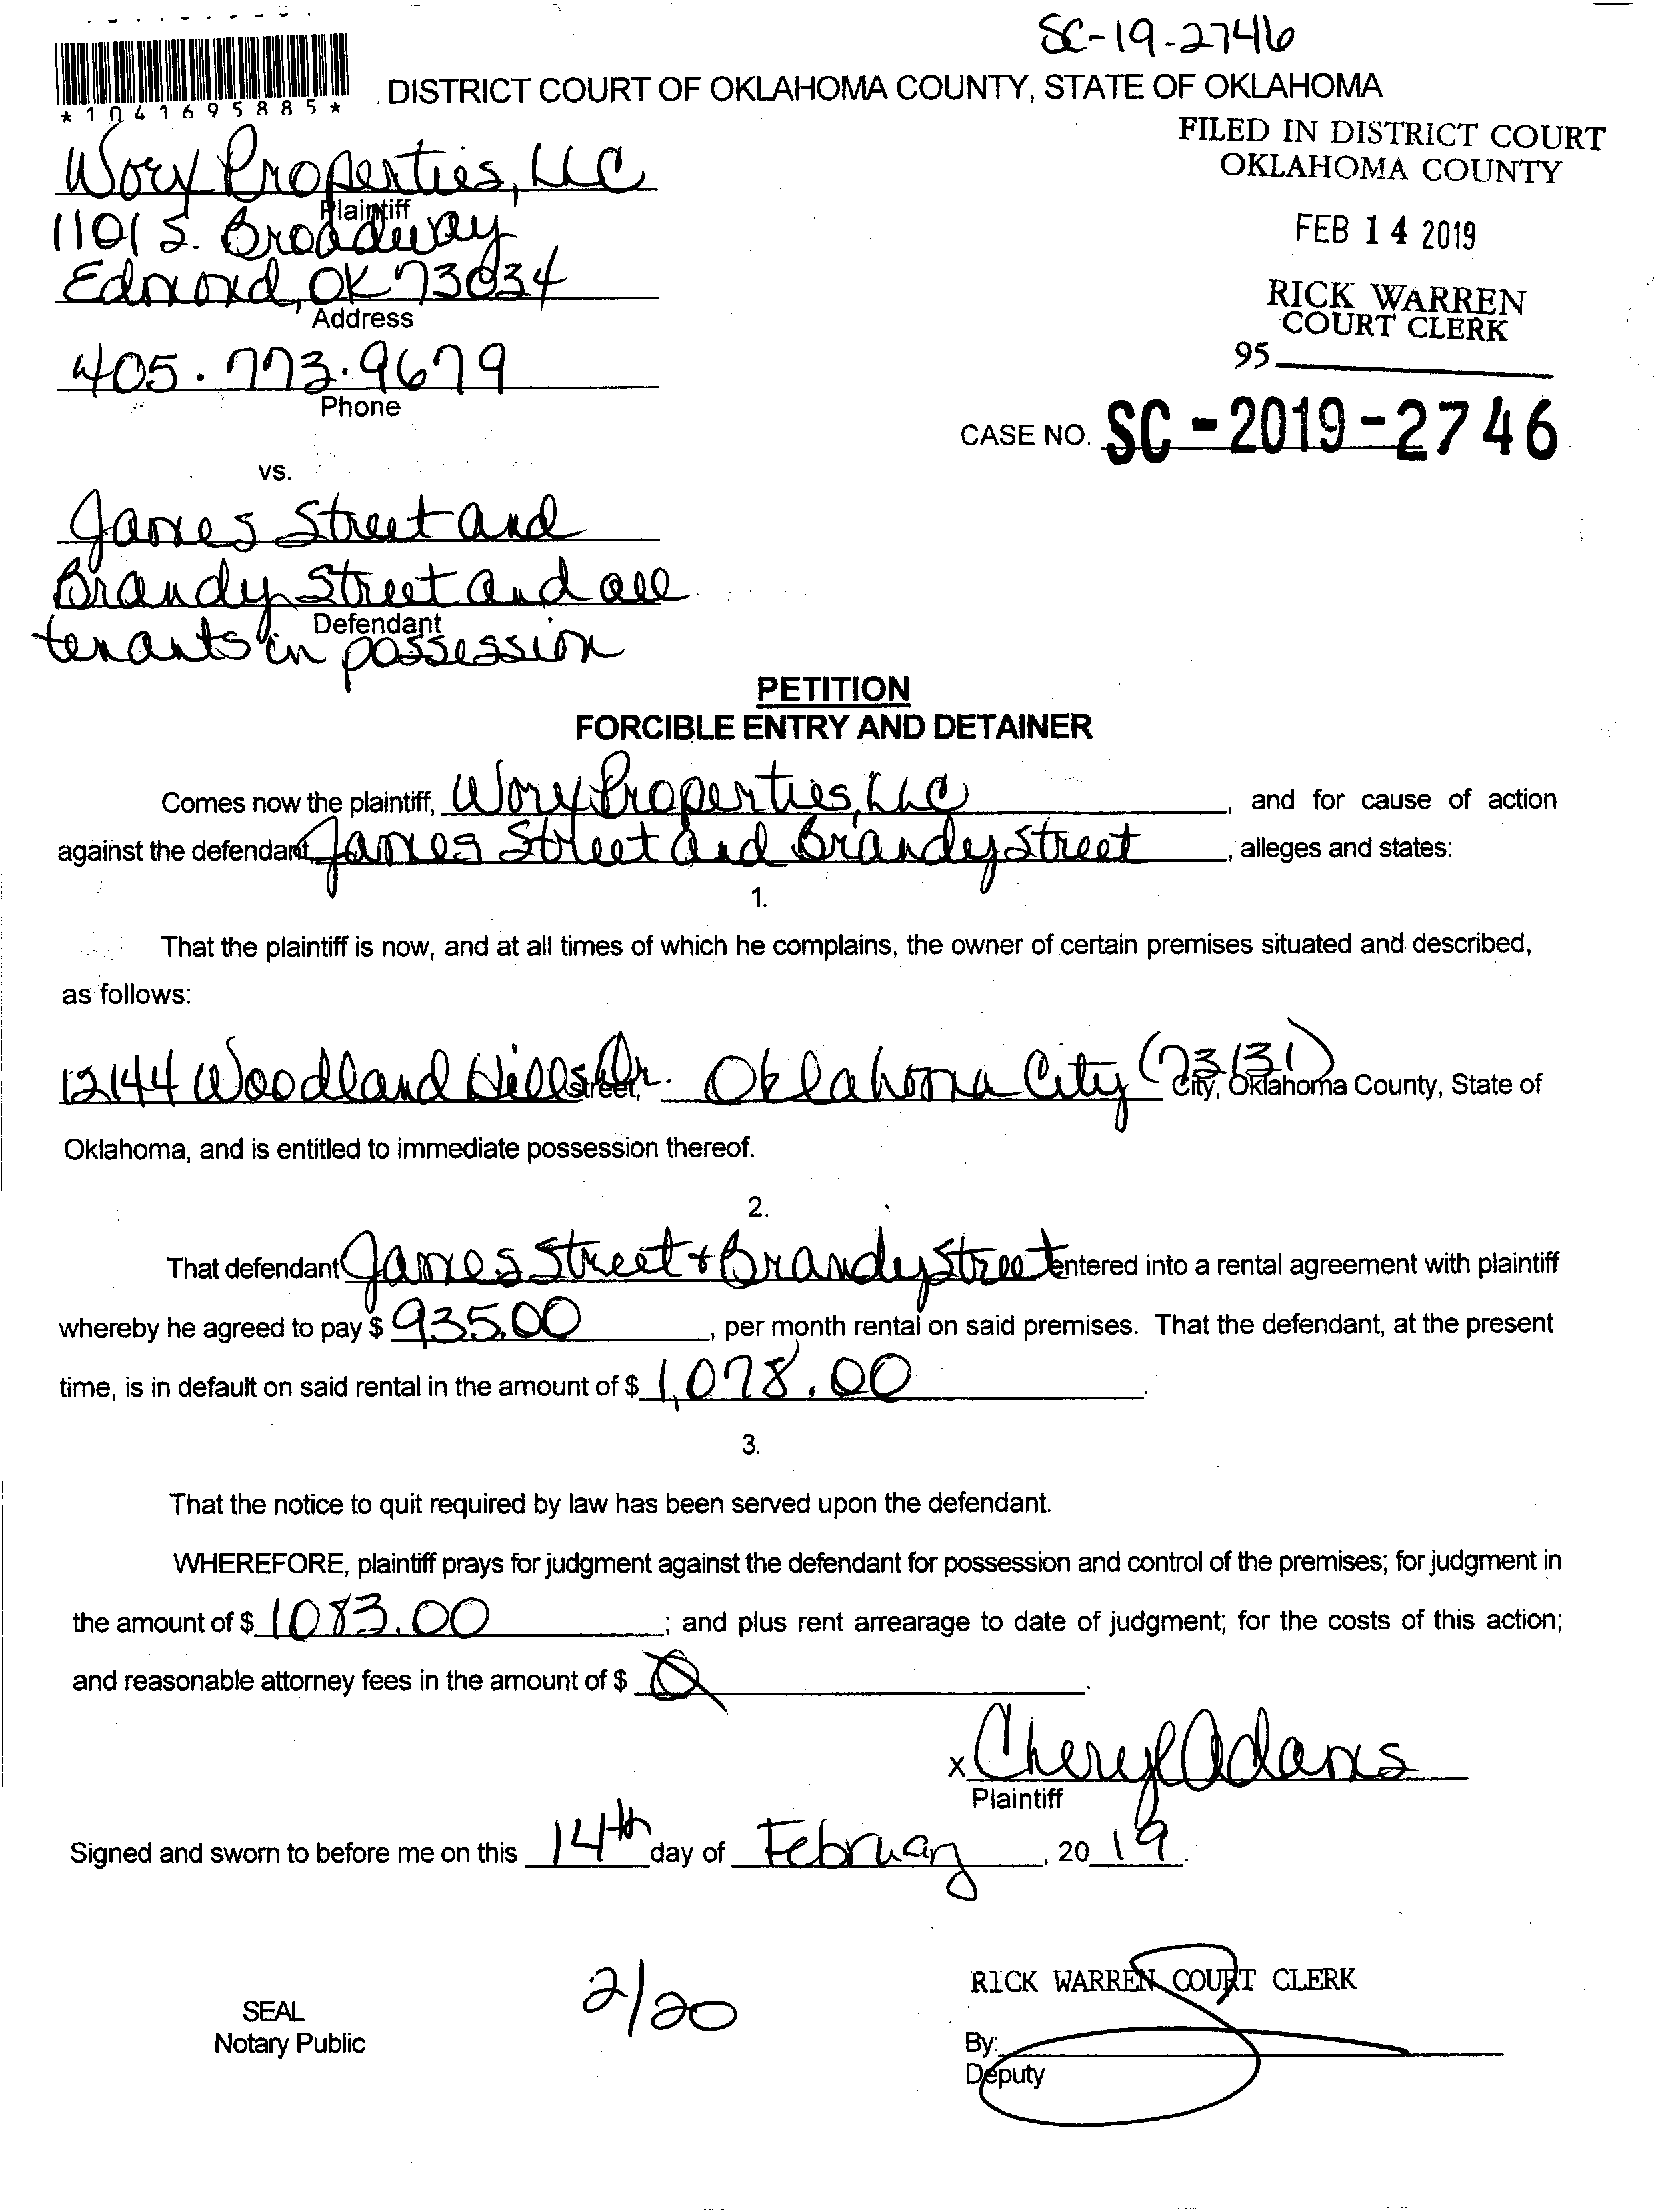 SC-19-2746
*1041695885*
DISTRICT COURT OF OKLAHOMA COUNTY, STATE OF OKLAHOMA
FILED IN DISTRICT COURT
OKLAHOMA COUNTY
FEB 14 2019
RICK WARREN
COURT CLERK
95
CASE NO. SC-2019-2746
Worx Properties, LLC
Plaintiff
1101 S. Broadway
Edmond, OK 73034
Address
405.773.9679
Phone
vs.
James Street and
Brandy Street and all
Defendant
tenants in possession
PETITION
FORCIBLE ENTRY AND DETAINER
Comes now the plaintiff, Worx Properties, LLC, and for cause of action
against the defendant James Street and Brandy Street, alleges and states:
1.
That the plaintiff is now, and at all times of which he complains, the owner of certain premises situated and described,
as follows:
12144 Woodland Hills Dr. Street, Oklahoma City (73131) City, Oklahoma County, State of
Oklahoma, and is entitled to immediate possession thereof.
2.
That defendant James Street + Brandy Street entered into a rental agreement with plaintiff
whereby he agreed to pay $ 935.00, per month rental on said premises. That the defendant, at the present
time, is in default on said rental in the amount of $ 1,078.00.
3.
That the notice to quit required by law has been served upon the defendant.
WHEREFORE, plaintiff prays for judgment against the defendant for possession and control of the premises; for judgment in
the amount of $ 1083.00; and plus rent arrearage to date of judgment; for the costs of this action;
and reasonable attorney fees in the amount of $ 0.
x Cheryl Adams
Plaintiff
Signed and sworn to before me on this 14th day of February, 2019.
2/20
SEAL
Notary Public
RICK WARREN COURT CLERK
By:
Deputy